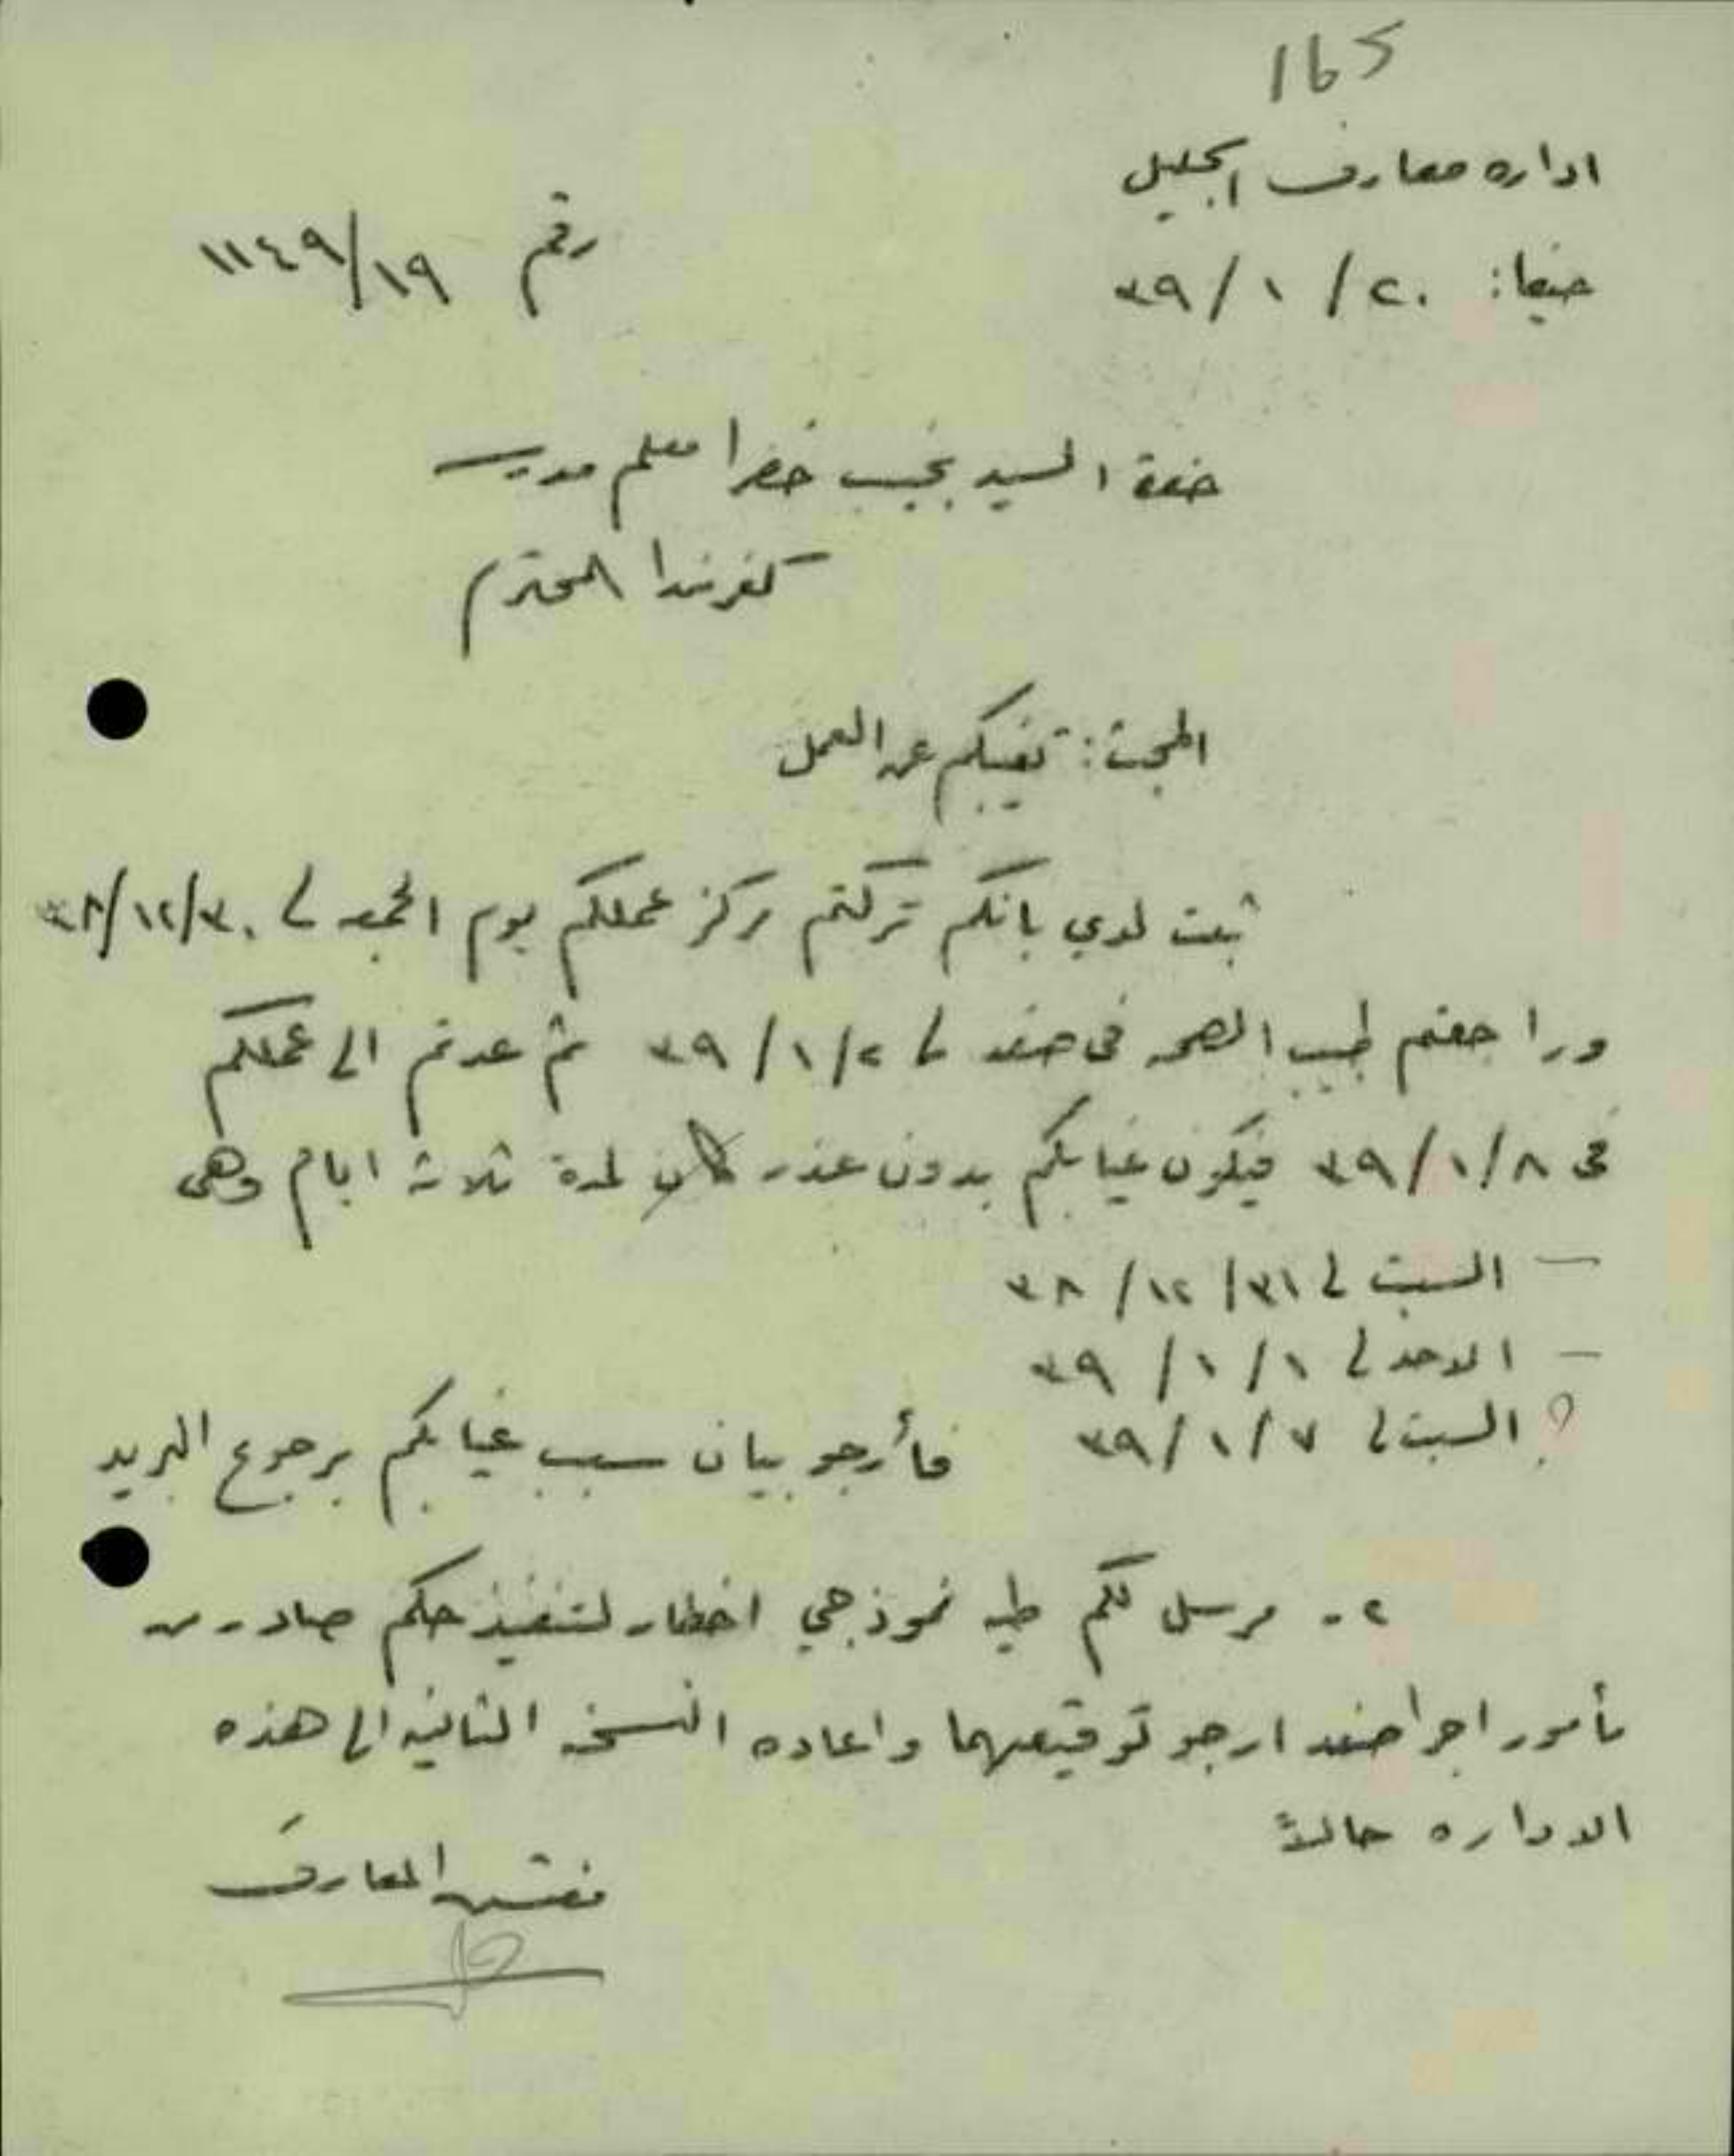 165
اداره معارف الجليل
حيفا: ٢٠ / ١ / ٣٩
رقم ١١٤٩/١٩
حضرة السيد نجيب خضرا معلم مدرسة
المحترم
المبحث: تغيبكم عن العمل
ثبت لدي بانكم تركتم مركز عملكم يوم الجمعه في ٣٠/١٢/٣٨
وراجعتم طبيب الصحه في صفد في ٣٩/١/٢ ثم عدتم الى عملكم
في ٣٩/١/٨ فيكون غيابكم بدون عذر كان لمدة ثلاثة ايام وهي
— السبت في ٣١/ ١٢/ ٣٨
— الاحد في ١ /١ / ٣٩
و السبت في ٧ /١/ ٣٩ فأرجو بيان سبب غيابكم برجوع البريد
٢- مرسل لكم طيه نموذجي اخطار لتنفيذ حكم صادر من
مأمور اجرا صفد ارجو توقيعهما واعاده النسخه الثانيه الى هذه
الاداره حالاً
مفتش المعارف